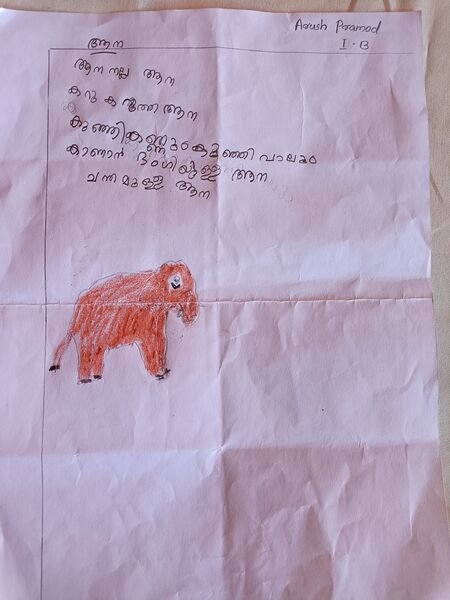 Arush Pramod
I-B
ആന
ആന നല്ല ആന
കറു കറുത്ത ആന
കുഞ്ഞികണ്ണും കുഞ്ഞി വാലും
കാണാൻ ഭംഗിയുള്ള ആന
ചന്തമുള്ള ആന